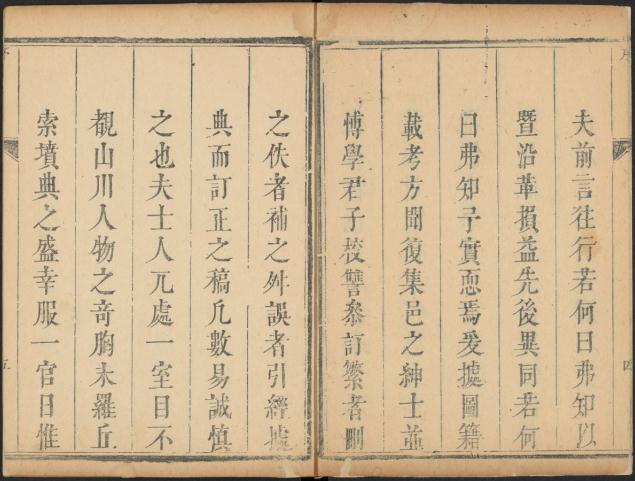 夫前言徃行若何曰弗知以
暨沿革損益先後異同若何
曰弗知予實恧焉爰據圖籍
載考方聞復集邑之紳士並
博學君子校讐叅訂繁者刪
之佚者補之舛誤者引經據
典而訂正之稿凡數易誠慎
之也夫士人兀處一室目不
覩山川人物之竒胸未羅丘
索墳典之盛幸服一官日惟
四
五